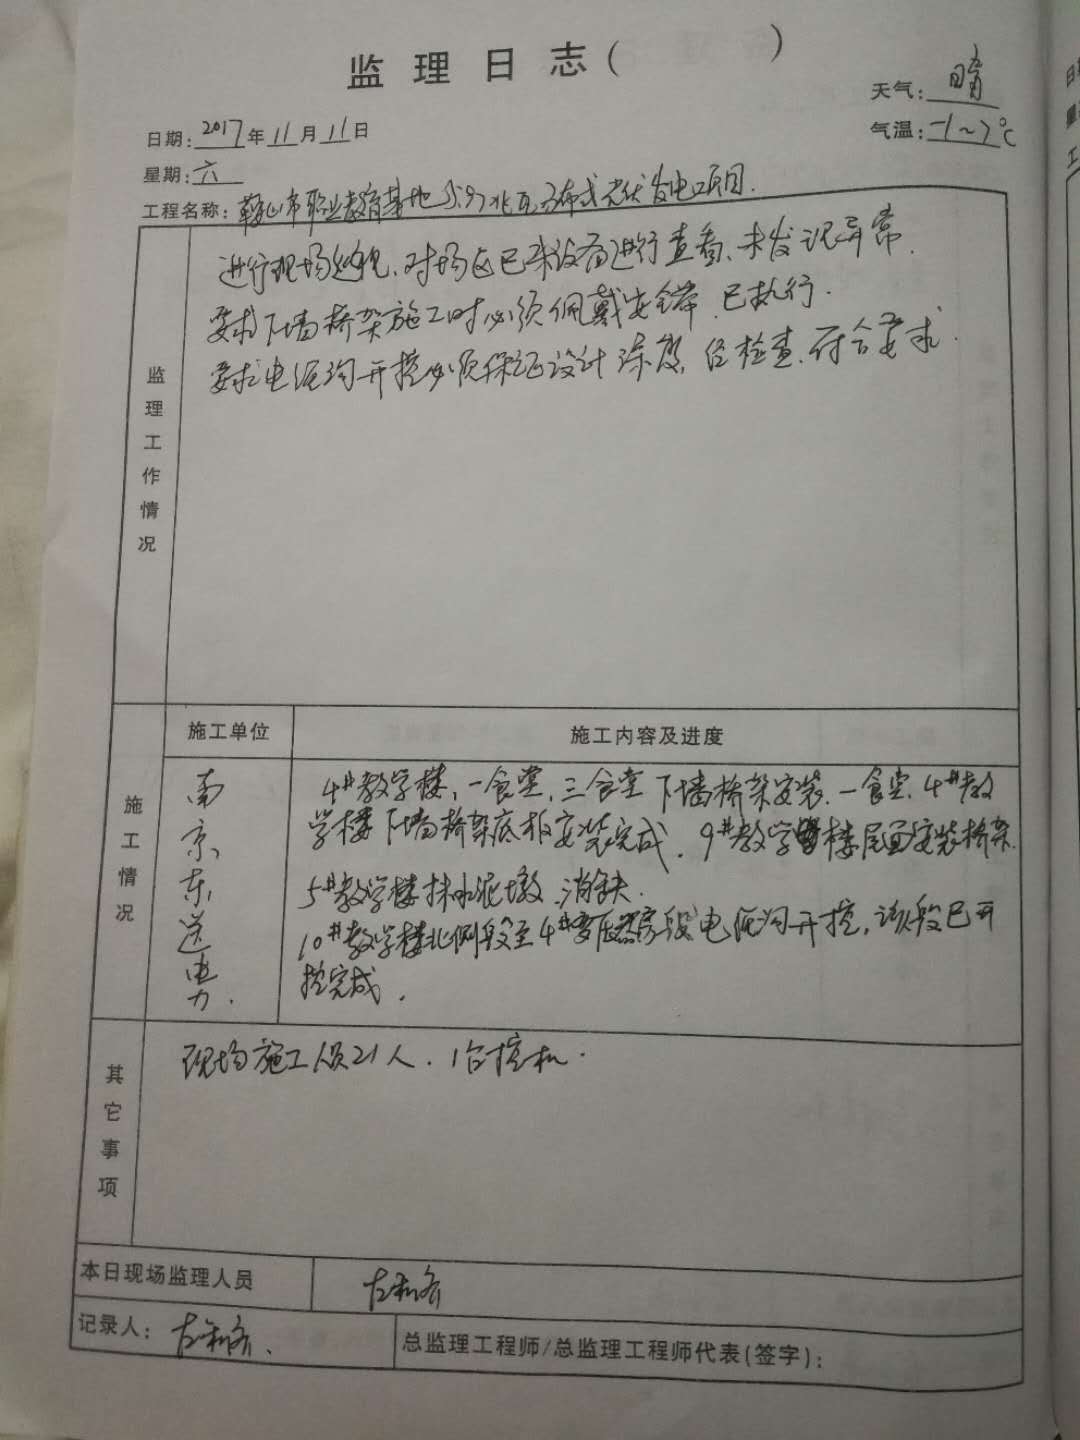 监理日志(          )
天气: 晴
日期: 2017年11月11日
气温: -1~7℃
星期: 六
工程名称: 鞍山市职业教育基地5.97兆瓦分布式光伏发电项目.
监理工作情况
进行现场巡视、对场区已来设备进行查看、未发现异常.
要求下墙桥架施工时必须佩戴安全带.已执行.
要求电缆沟开挖必须保证设计深度,经检查.符合要求.
施工情况
施工单位
施工内容及进度
南京东送电力.
4#教学楼,一食堂,三食堂下墙桥架安装.一食堂.4#教
学楼下墙桥架底板安装完成.9#教学楼屋面安装桥架.
5#教学楼抹水泥墩.消缺.
10#教学楼北侧段至4#变压器房段电缆沟开挖,该段已开
挖完成.
其它事项
现场施工人员21人.1台挖机.
本日现场监理人员
记录人:
总监理工程师/总监理工程师代表(签字):